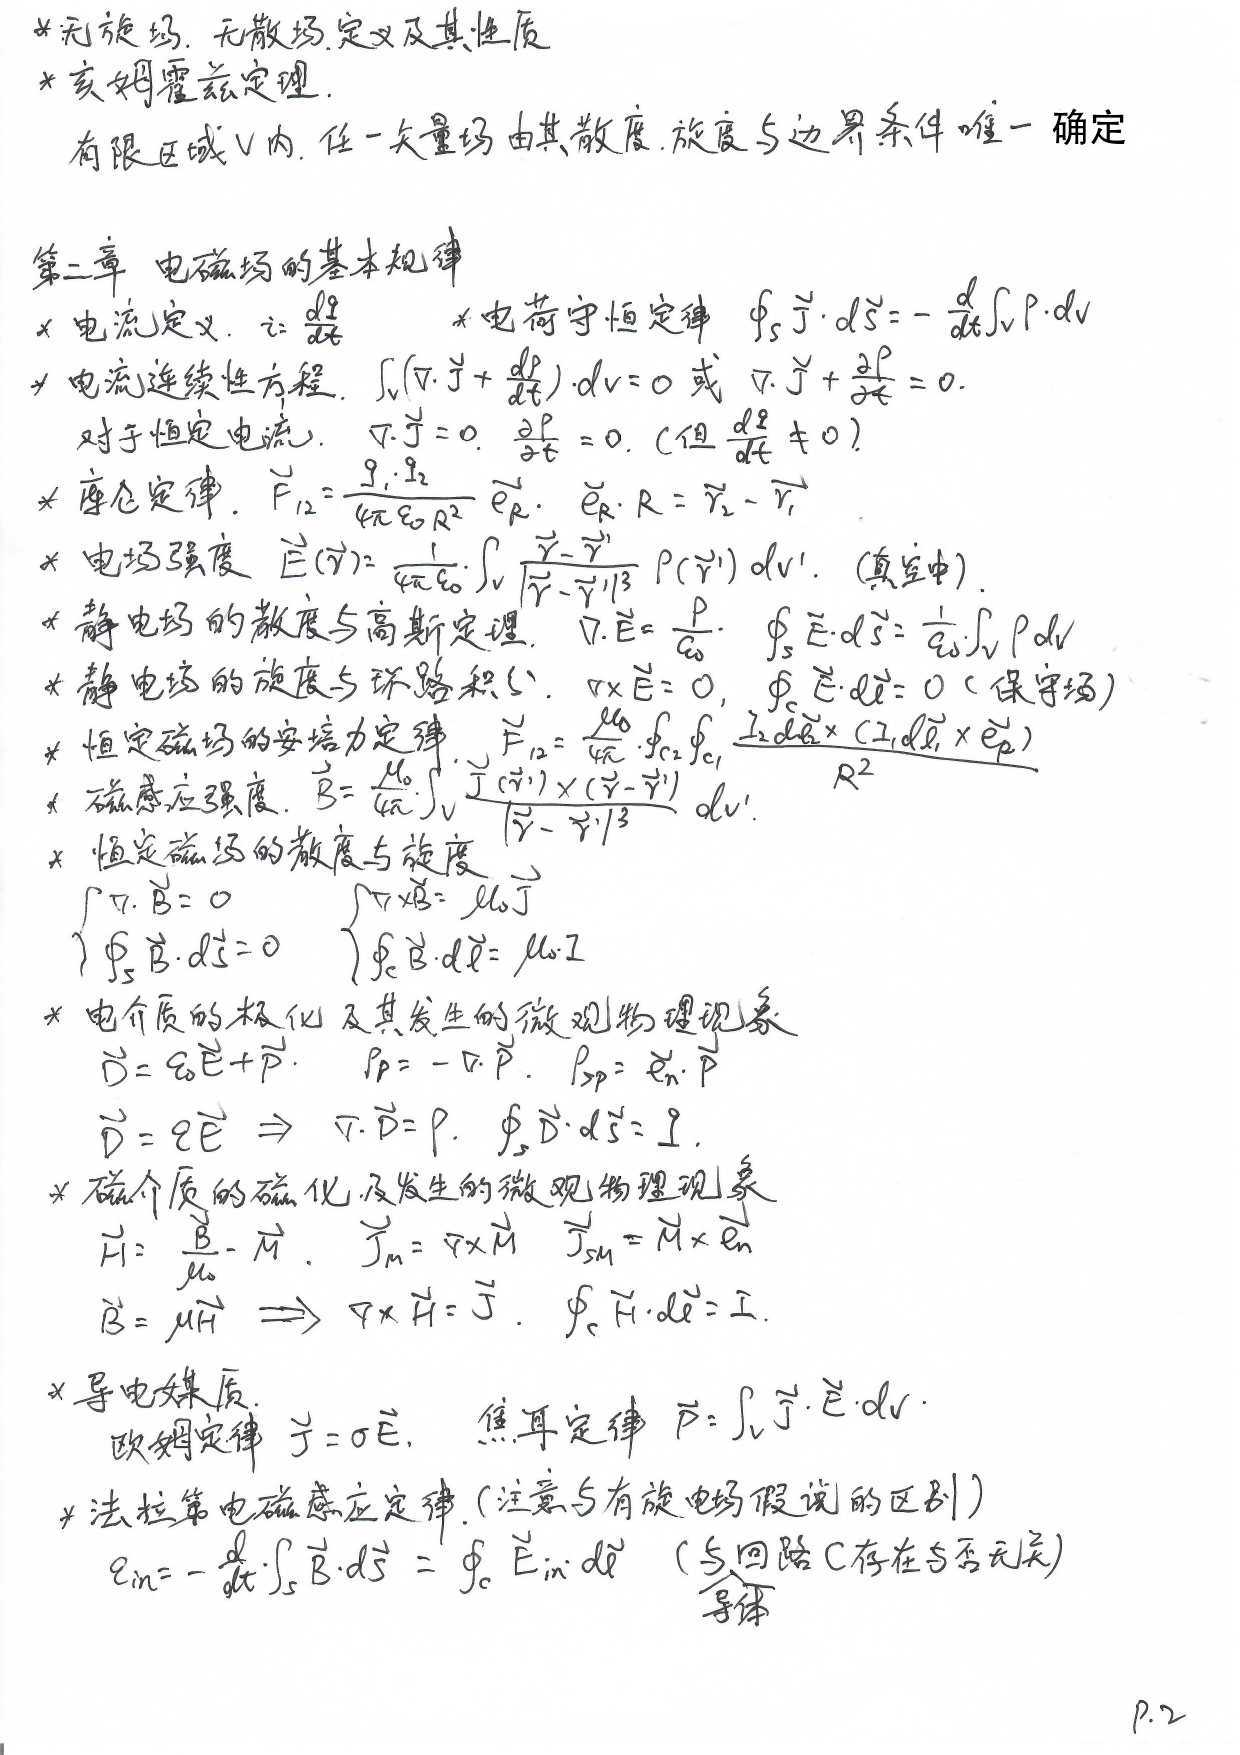 *无旋场. 无散场.定义及其性质
* 亥姆霍兹定理.
有限区域V内. 任一矢量场由其散度.旋度与边界条件唯一 确定
第二章 电磁场的基本规律
* 电流定义. i = dq/dt * 电荷守恒定律 ∮ₛ J⃗·dS⃗ = - d/dt ∫ᵥ ρ·dv
* 电流连续性方程. ∫ᵥ(∇·J⃗ + dρ/dt)·dv = 0 或 ∇·J⃗ + ∂ρ/∂t = 0.
对于恒定电流. ∇·J⃗ = 0. ∂ρ/∂t = 0. (但 dq/dt ≠ 0)
* 库仑定律. F⃗₁₂ = q₁·q₂/(4πε₀R²) e⃗_R. e⃗_R·R = r⃗₂ - r⃗₁
* 电场强度 E⃗(r⃗) = 1/(4πε₀)·∫ᵥ (r⃗ - r⃗')/|r⃗ - r⃗'|³ ρ(r⃗') dv'. (真空中).
* 静电场的散度与高斯定理. ∇·E⃗ = ρ/ε₀. ∮ₛ E⃗·dS⃗ = 1/ε₀·∫ᵥ ρdv
* 静电场的旋度与环路积分. ∇×E⃗ = 0, ∮_c E⃗·dl⃗ = 0 (保守场)
* 恒定磁场的安培力定律. F⃗₁₂ = μ₀/4π·∮_c₂ ∮_c₁ I₂dl⃗₂×(I₁dl⃗₁×e⃗_R)/R²
* 磁感应强度. B⃗ = μ₀/4π·∫ᵥ J⃗(r⃗')×(r⃗ - r⃗')/|r⃗ - r⃗'|³ dv'.
* 恒定磁场的散度与旋度
{∇·B⃗ = 0 {∇×B⃗ = μ₀J⃗
∮ₛ B⃗·dS⃗ = 0 ∮_c B⃗·dl⃗ = μ₀·I
* 电介质的极化及其发生的微观物理现象
D⃗ = ε₀E⃗ + P⃗. ρ_P = -∇·P⃗. ρ_SP = e⃗_n·P⃗
D⃗ = εE⃗ ⇒ ∇·D⃗ = ρ. ∮ₛ D⃗·dS⃗ = q.
* 磁介质的磁化及发生的微观物理现象
H⃗ = B⃗/μ₀ - M⃗. J⃗_M = ∇×M⃗ J⃗_SM = M⃗×e⃗_n
B⃗ = μH⃗ ⇒ ∇×H⃗ = J⃗. ∮_c H⃗·dl⃗ = I.
* 导电媒质.
欧姆定律 J⃗ = σE⃗. 焦耳定律 P⃗ = ∫ᵥ J⃗·E⃗·dv.
* 法拉第电磁感应定律.(注意与有旋电场假说的区别)
ε_in = - d/dt·∫ₛ B⃗·dS⃗ = ∮_c E⃗_in·dl⃗ (与回路C存在与否无关)
导体
P.2